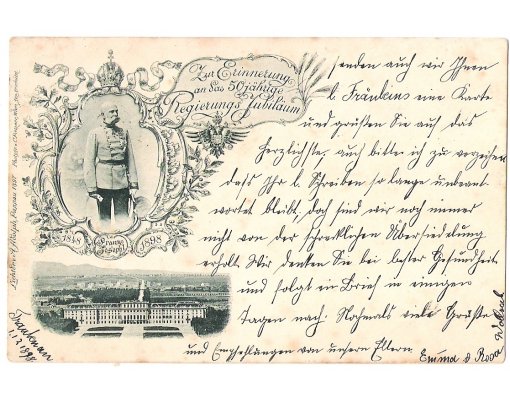 Zur Erinnerung
an das 50jährige
Regierungs Jubiläum
1848
Franz
Joseph I
1898
senden auch wir Ihnen
l. Fräuleins eine Karte
und grüßen Sie auf das
Herzlichste, auch bitte ich zu verzeihen
dass Ihr l. Schreiben so lange unbeant-
wortet bleibt, doch sind wir noch immer
nicht von der schrecklichen Übersiedelung
erholt. Wir denken Sie bei bester Gesundheit
und folgt ein Brief in einigen
Tagen nach. Nochmals viele Grüße
und Empfehlungen von unseren Eltern.
Emma & Rosa